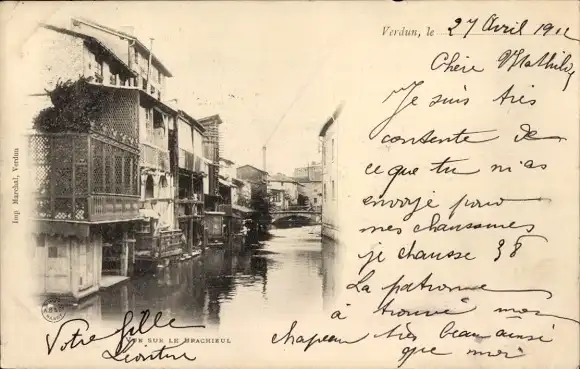 Verdun, le 27 Avril 19
Chère Mathilde
Je suis très
contente de
ce que tu m'as
envoyé pour
mes chaussures
je chausse 38
La patronne
à trouvé mon
chapeau très beau ainsi
que moi
Votre fille
VUE SUR LE BRACHIEUL
Imp. Marchal, Verdun